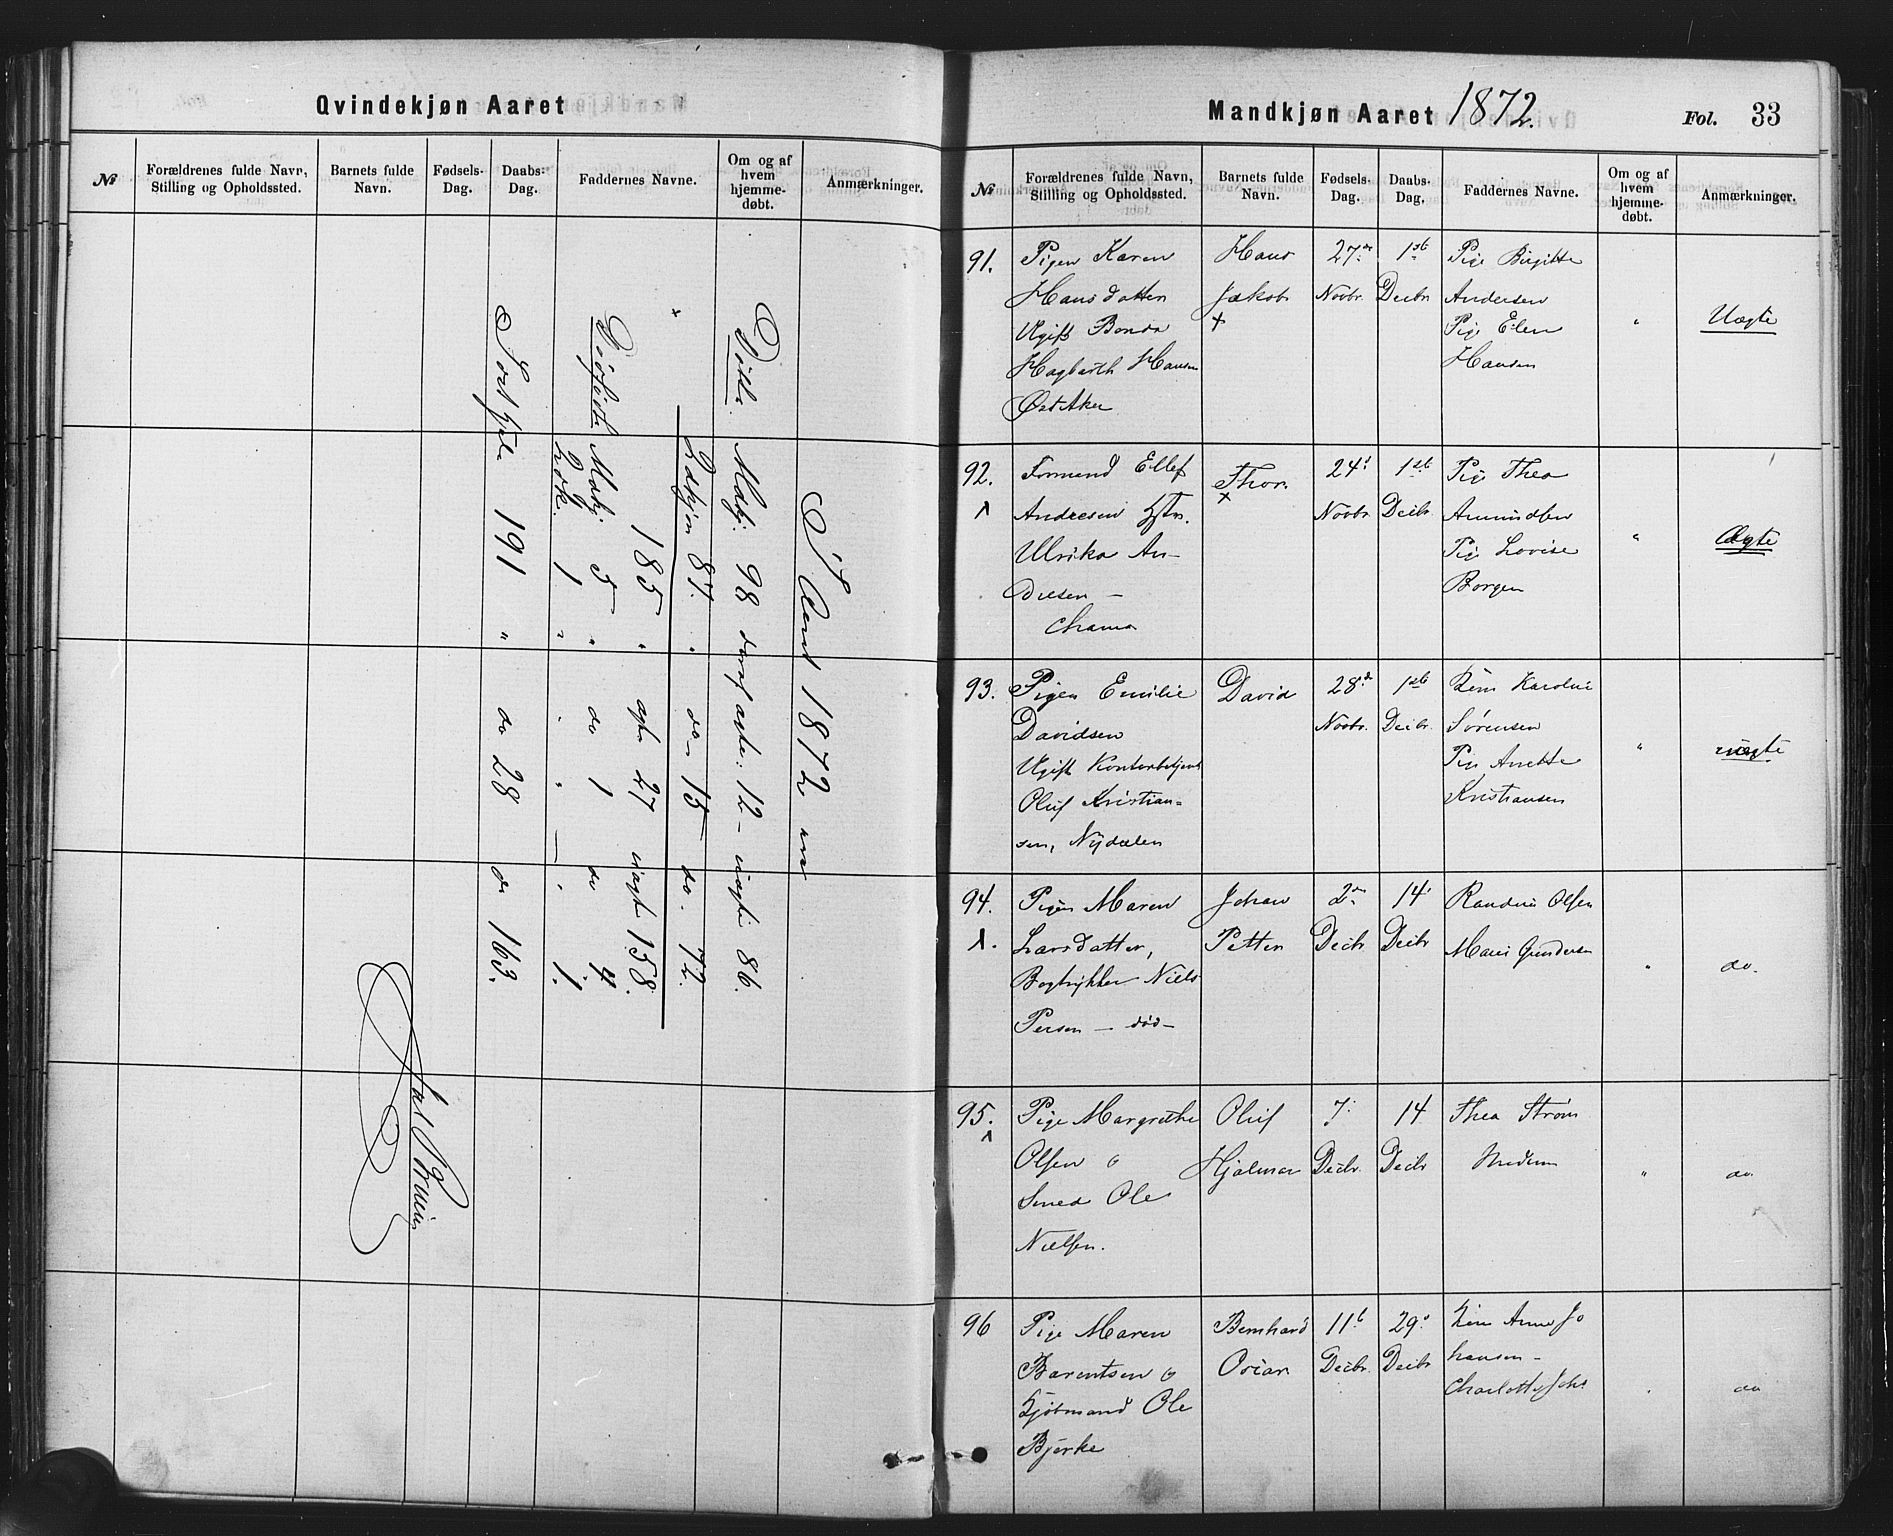 Qvindekjøn Aaret
№
Forældrenes fulde Navn,
Stilling og Opholdssted.
Barnets fulde
Navn.
Fødsels-
Dag.
Daabs-
Dag.
Faddernes Navne.
Om og af
hvem
hjemme-
døbt.
Anmærkninger.
I Aaret 1872 
Døbte: Mdkj. 98 deraf ægte: 12 – uægte 86.
Qdkjøn 87. " do – 15 – do. 72.
185 " ægte 27 uægt 158.
Dødfødte Mdkj. 5 " do 1 do 4.
Qvk. 1 " " " — " 1.
191 " do 28 do 163.
Mandkjøn Aaret 1872.
Fol. 33
№
Forældrenes fulde Navn,
Stilling og Opholdssted.
Barnets fulde
Navn.
Fødsels-
Dag.
Daabs-
Dag.
Faddernes Navne.
Om og af
hvem
hjemme-
døbt.
Anmærkninger.
91.
Pigen Karen
Hansdatter
Ugift Bonde
Hagbarth Hansen
Øst Aker
Hans
Jakob
+
27de
Novbr.
1ste
Decbr
Pige Birgitte
Andersen
Pige Elen
Hansen
"
Uægte
92.
Formand Ellef
Andresen Hstr.
Ulrika An-
dresen –
Thor.
+
24d
Novbr.
1ste
Decbr.
Pige Thea
Amundsen
Pige Lovise
Borgen
"
Ægte
93.
Pigen Emilie
Davidsen
Ugift Kontorbetjent
Oluf Kristian-
sen, Nydalen
David
28de
Novbr.
1ste
Decbr.
Karoline
Sørensen
Pige Anette
Kristiansen
"
uægte
94.
Pigen Maren
Larsdatter,
Bogtrykker Niels
Persen – død –
Johan
Petter
2den
Decbr.
14'
Decbr
Randine Olsen
Maren Gundersen
"
do.
95.
Pige Margrethe
Olsen o
Smed Ole
Nielsen.
Oluf
Hjalmar
7.
Decbr.
14
Decbr
Thea Strøm
"
do.
96
Pige Maren
Barentsen o
Kjøbmand Ole
Bjerke
Bernhard
Oscar
11te
Decbr.
29'
Decbr
Anne Jo
hansen –
"
do